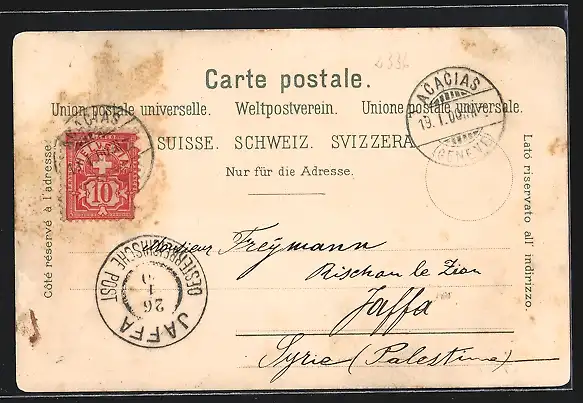 2336
Carte postale.
Union postale universelle. Weltpostverein. Unione postale universale.
SUISSE. SCHWEIZ. SVIZZERA.
Nur für die Adresse.
Côté réservé à l'adresse.
Lato riservato all' indirizzo.
ACACIAS
19. I.
(GENÈVE)
ACACIAS
HELVETIA
10
JAFFA
OESTERREICHISCHE POST
26
1
Monsieur Freymann
Rischon le Zion
Jaffa
Syrie (Palestine)